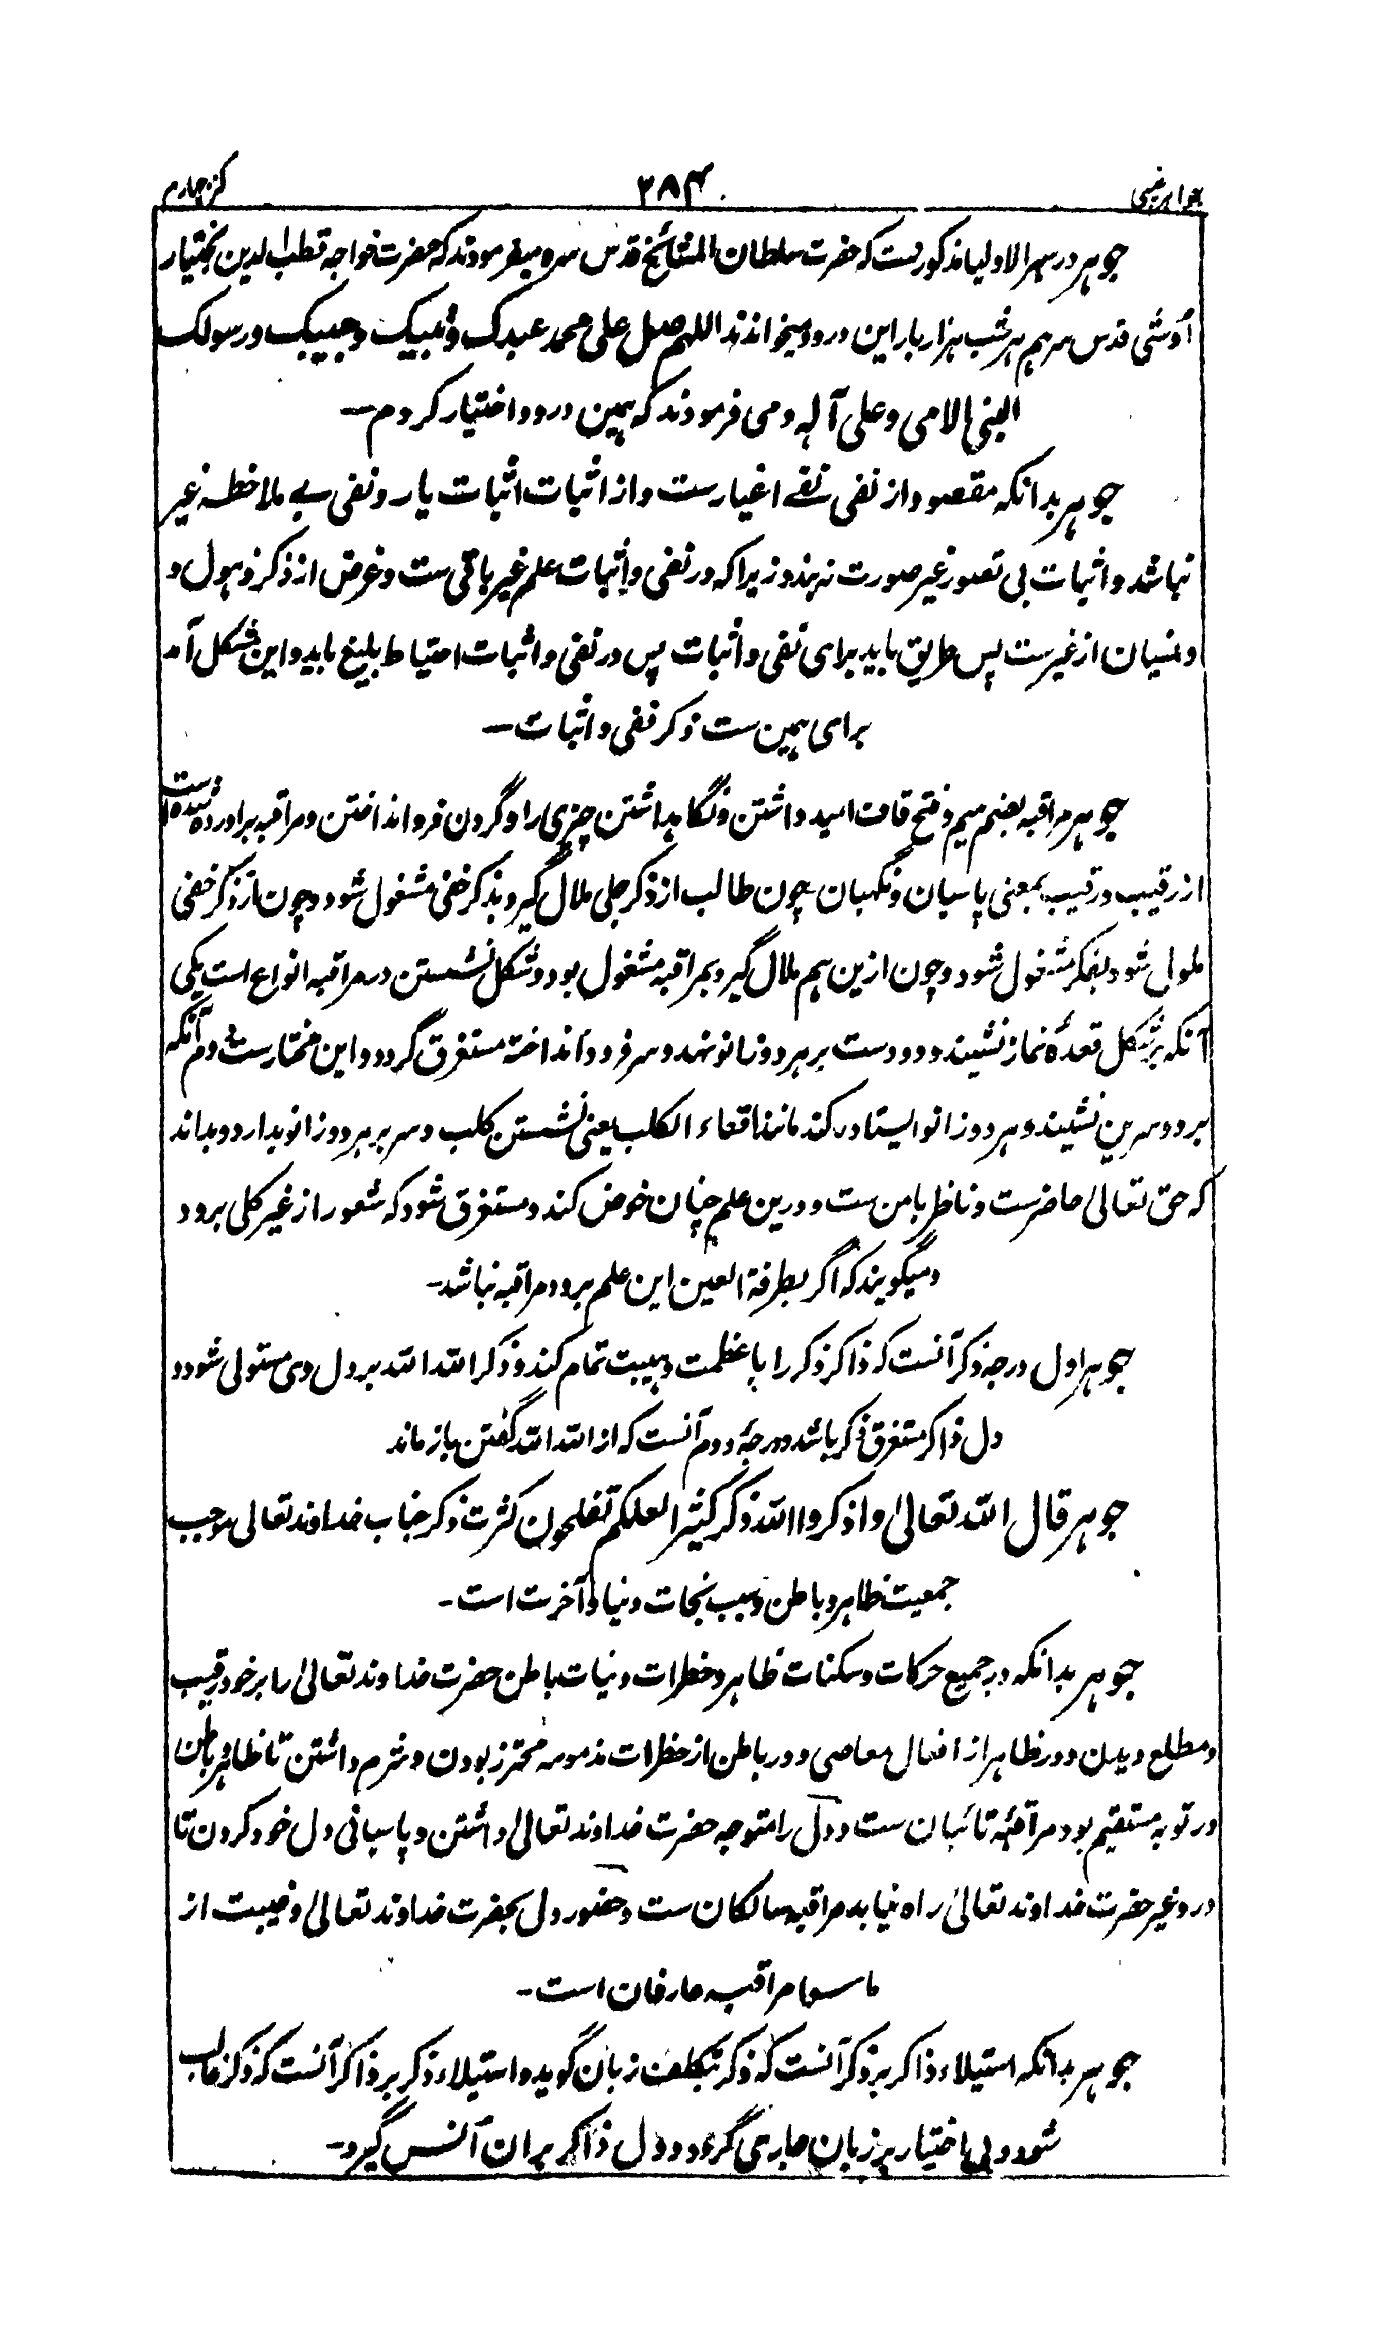 جواهر غیبی
۳۸۴
کنز چهارم
جوهر در سیر الاولیا مذکورست که حضرت سلطان المشائخ قدس سره میفرمودند که حضرت خواجه قطب الدین بختیار
اوشی قدس سرهم هر شب هزار بار این درود میخواندند اللهم صل علی محمد عبدک و نبیک و حبیبک و رسولک
النبی الامی و علی آله و می فرمودند که همین درود اختیار کردم—
جوهر بدانکه مقصود از نفی نفی اغیارست و از اثبات اثبات یار و نفی بے ملاحظه غیر
نباشد و اثبات بی تصور غیر صورت نه بندد زیرا که در نفی و اثبات علم غیر باقی ست و غرض از ذکر ذهول و
و نسیان از غیرست پس طریق باید برای نفی و اثبات پس در نفی و اثبات احتیاط بلیغ باید و این مشکل آمد
برای همین ست ذکر نفی و اثبات—
جوهر مراقبه بضم میم و فتح قاف امید داشتن و نگاهداشتن چیزی را و گردن فرو انداختن و مراقبه برآورده شده است
از رقیب و رقیب بمعنی پاسبان و نگهبان چون طالب از ذکر جلی ملال گیرد بذکر خفی مشغول شود و چون از ذکر خفی
ملول شود بفکر مشغول شود و چون ازین هم ملال گیرد بمراقبه مشغول بود و شکل نشستن در مراقبه انواع است یکی
آنکه بر شکل قعدهٔ نماز نشیند و دو دست بر هر دو زانو نهد و سر فرود انداخته مستغرق گردد و این مختارست دوم آنکه
بر دو سرین نشیند و هر دو زانو ایستاده کند مانند اقعاء الکلب یعنی نشستن کلب و سر بر هر دو زانو بدارد و بداند
که حق تعالی حاضرست و ناظر بامن ست و درین علم چنان خوض کند و مستغرق شود که شعور از غیر کلی برود
و میگویند که اگر بطرفة العین این علم برود مراقبه نباشد—
جوهر اول درجه ذکر آنست که ذاکر ذکر را با عظمت و هیبت تمام کند و ذکر الله الله بر دل وی مستولی شود و
دل ذاکر مستغرق ذکر باشد و درجهٔ دوم آنست که از الله الله گفتن باز ماند
جوهر قال الله تعالیٰ و اذکروا الله ذکر کثیرا لعلکم تفلحون کثرت ذکر جناب خداوند تعالی موجب
جمعیت ظاهر و باطن و سبب نجات دنیا و آخرت است—
جوهر بدانکه در جمیع حرکات و سکنات ظاهر و خطرات و نیات باطن حضرت خداوند تعالیٰ را بر خود رقیب
و مطلع دیدن و در ظاهر از افعال معاصی و در باطن از خطرات مذمومه محترز بودن و شرم داشتن تا ظاهر و باطن
در توبه مستقیم بود مراقبهٔ تائبان ست و دل را متوجه حضرت خداوند تعالیٰ داشتن و پاسبانی دل خود کردن تا
درو غیر حضرت خداوند تعالیٰ راه نیابد مراقبه سالکان ست و حضور دل بحضرت خداوند تعالیٰ و غیبت از
ما سوا مراقبه عارفان است—
جوهر بدانکه استیلاء ذاکر بر ذکر آنست که ذکر بتکلف زبان گوید و استیلاء ذکر بر ذاکر آنست که ذکر غالب
شود و بی اختیار بر زبان جاری گردد و دل ذاکر بران انس گیرد—